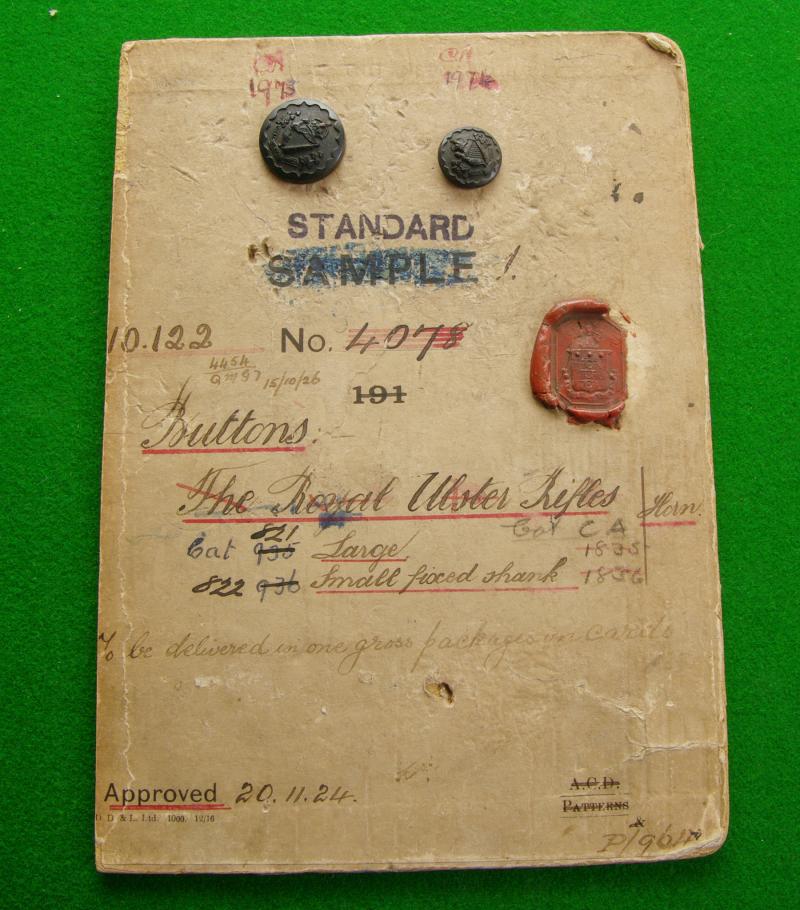 CA CA
1973 1974
STANDARD
SAMPLE
10.122 No. 4078
4454
15/10/26
191
Buttons:-
The Royal Ulster Rifles Horn.
Cat C A
Cat 935 821 Large 1835
822 936 Small fixed shank 1836
To be delivered in one gross packages on cards
Approved 20.11.24.
A.C.D.
PATTERNS
D. D & L. Ltd. 1000. 12/16